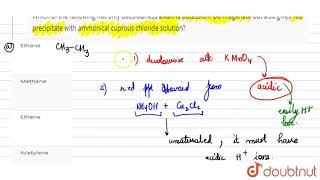 Which of the following not only decolourises alkaline potassium permanganate but also gives red
precipitate with ammonical cuprous chloride solution?
(a) Ethane CH3-CH3
1) decolourise alk KMnO4
Methane
2) red ppt formed from acidic
NH4OH + Cu2Cl2
easily H+
lose.
Ethene
unsaturated, it must have
acidic H+ ions.
Acetylene
doubtnut